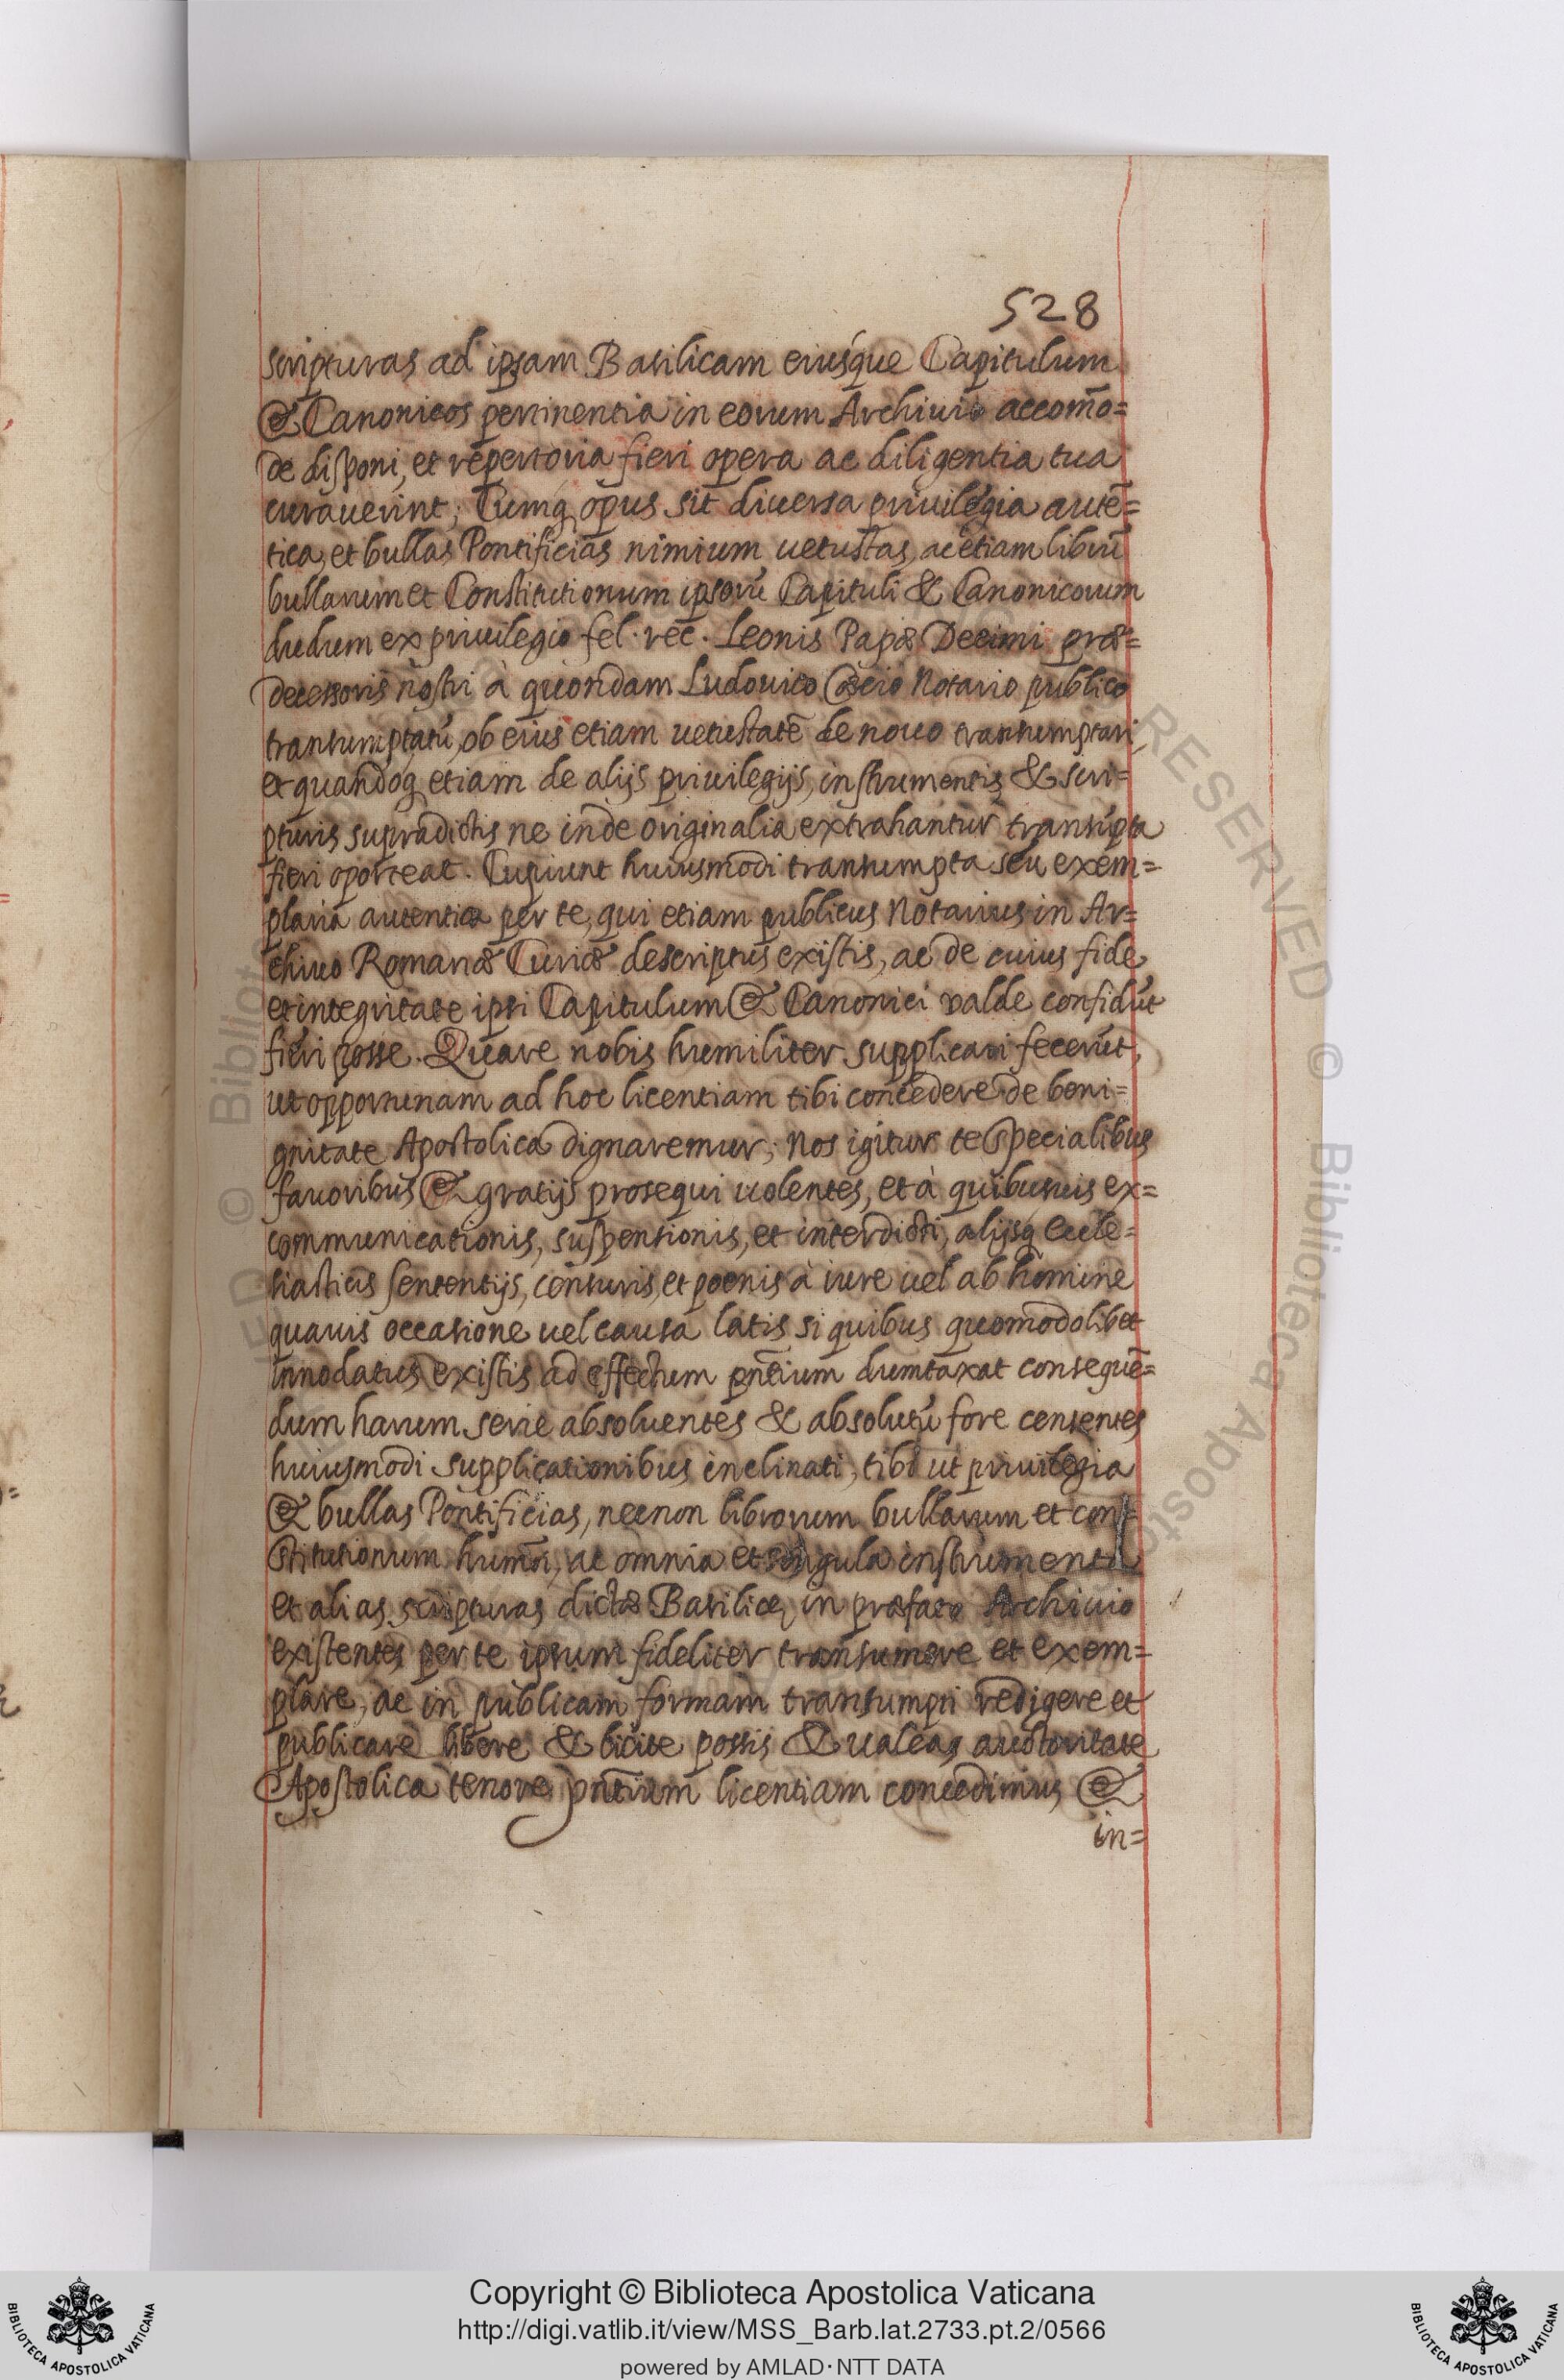 528
scripturas ad ipsam Basilicam eiusque Capitulum
& Canonicos pertinentia in eorum Archiuio accom̄o=
de disponi, et repertoria fieri opera ac diligentia tua
curauerint; Cumq opus sit diuersa priuilegia autē=
tica, et bullas Pontificias nimium uetustas, ac etiam librū
bullarum et Constitutionum ipsorū Capituli & Canonicorum
dudum ex priuilegio fel. rec. Leonis Papæ Decimi præ=
decessoris nostri à quondam Ludouico Notario publico
transumptatū, ob eius etiam uetustatē de nouo transumptari,
et quandoq etiam de alijs priuilegijs, instrumentis & scri=
pturis supradictis ne inde originalia extrahantur transūpta
fieri oporteat. Cupiunt huiusmodi transumpta seu exem=
plaria autentica per te, qui etiam publicus Notarius in Ar=
chiuo Romanæ Curiæ descriptus existis, ac de cuius fide
et integritate ipsi Capitulum & Canonici valde confidūt
fieri posse. Quare nobis humiliter supplicari fecerūt,
ut opportunam ad hoc licentiam tibi concedere de beni=
gnitate Apostolica dignaremur; Nos igitur te specialibus
fauoribus & gratijs prosequi uolentes, et à quibusuis ex=
communicationis, suspensionis, et interdicti, alijsq eccle=
siasticis sententijs, censuris, et poenis à iure uel ab homine
quauis occasione uel causa latis si quibus quomodolibet
innodatus existis ad effectum pn̄tium dumtaxat consequē=
dum harum serie absoluentes & absolutū fore censentes
huiusmodi supplicationibus inclinati, tibi ut priuilegia
& bullas Pontificias, necnon librorum bullarum et con=
stitutionum humōi, ac omnia et singula instrumenta
et alias scripturas dictæ Basilicæ, in præfato Archiuio
existentes per te ipsum fideliter transumere et exem=
plare, ac in publicam formam transumpti redigere et
publicare libere & licite possis & ualeas auctoritate
Apostolica tenore pn̄tium licentiam concedimus &
in=
Copyright © Biblioteca Apostolica Vaticana
http://digi.vatlib.it/view/MSS_Barb.lat.2733.pt.2/0566
powered by AMLAD·NTT DATA
BIBLIOTECA APOSTOLICA VATICANA
BIBLIOTECA APOSTOLICA VATICANA